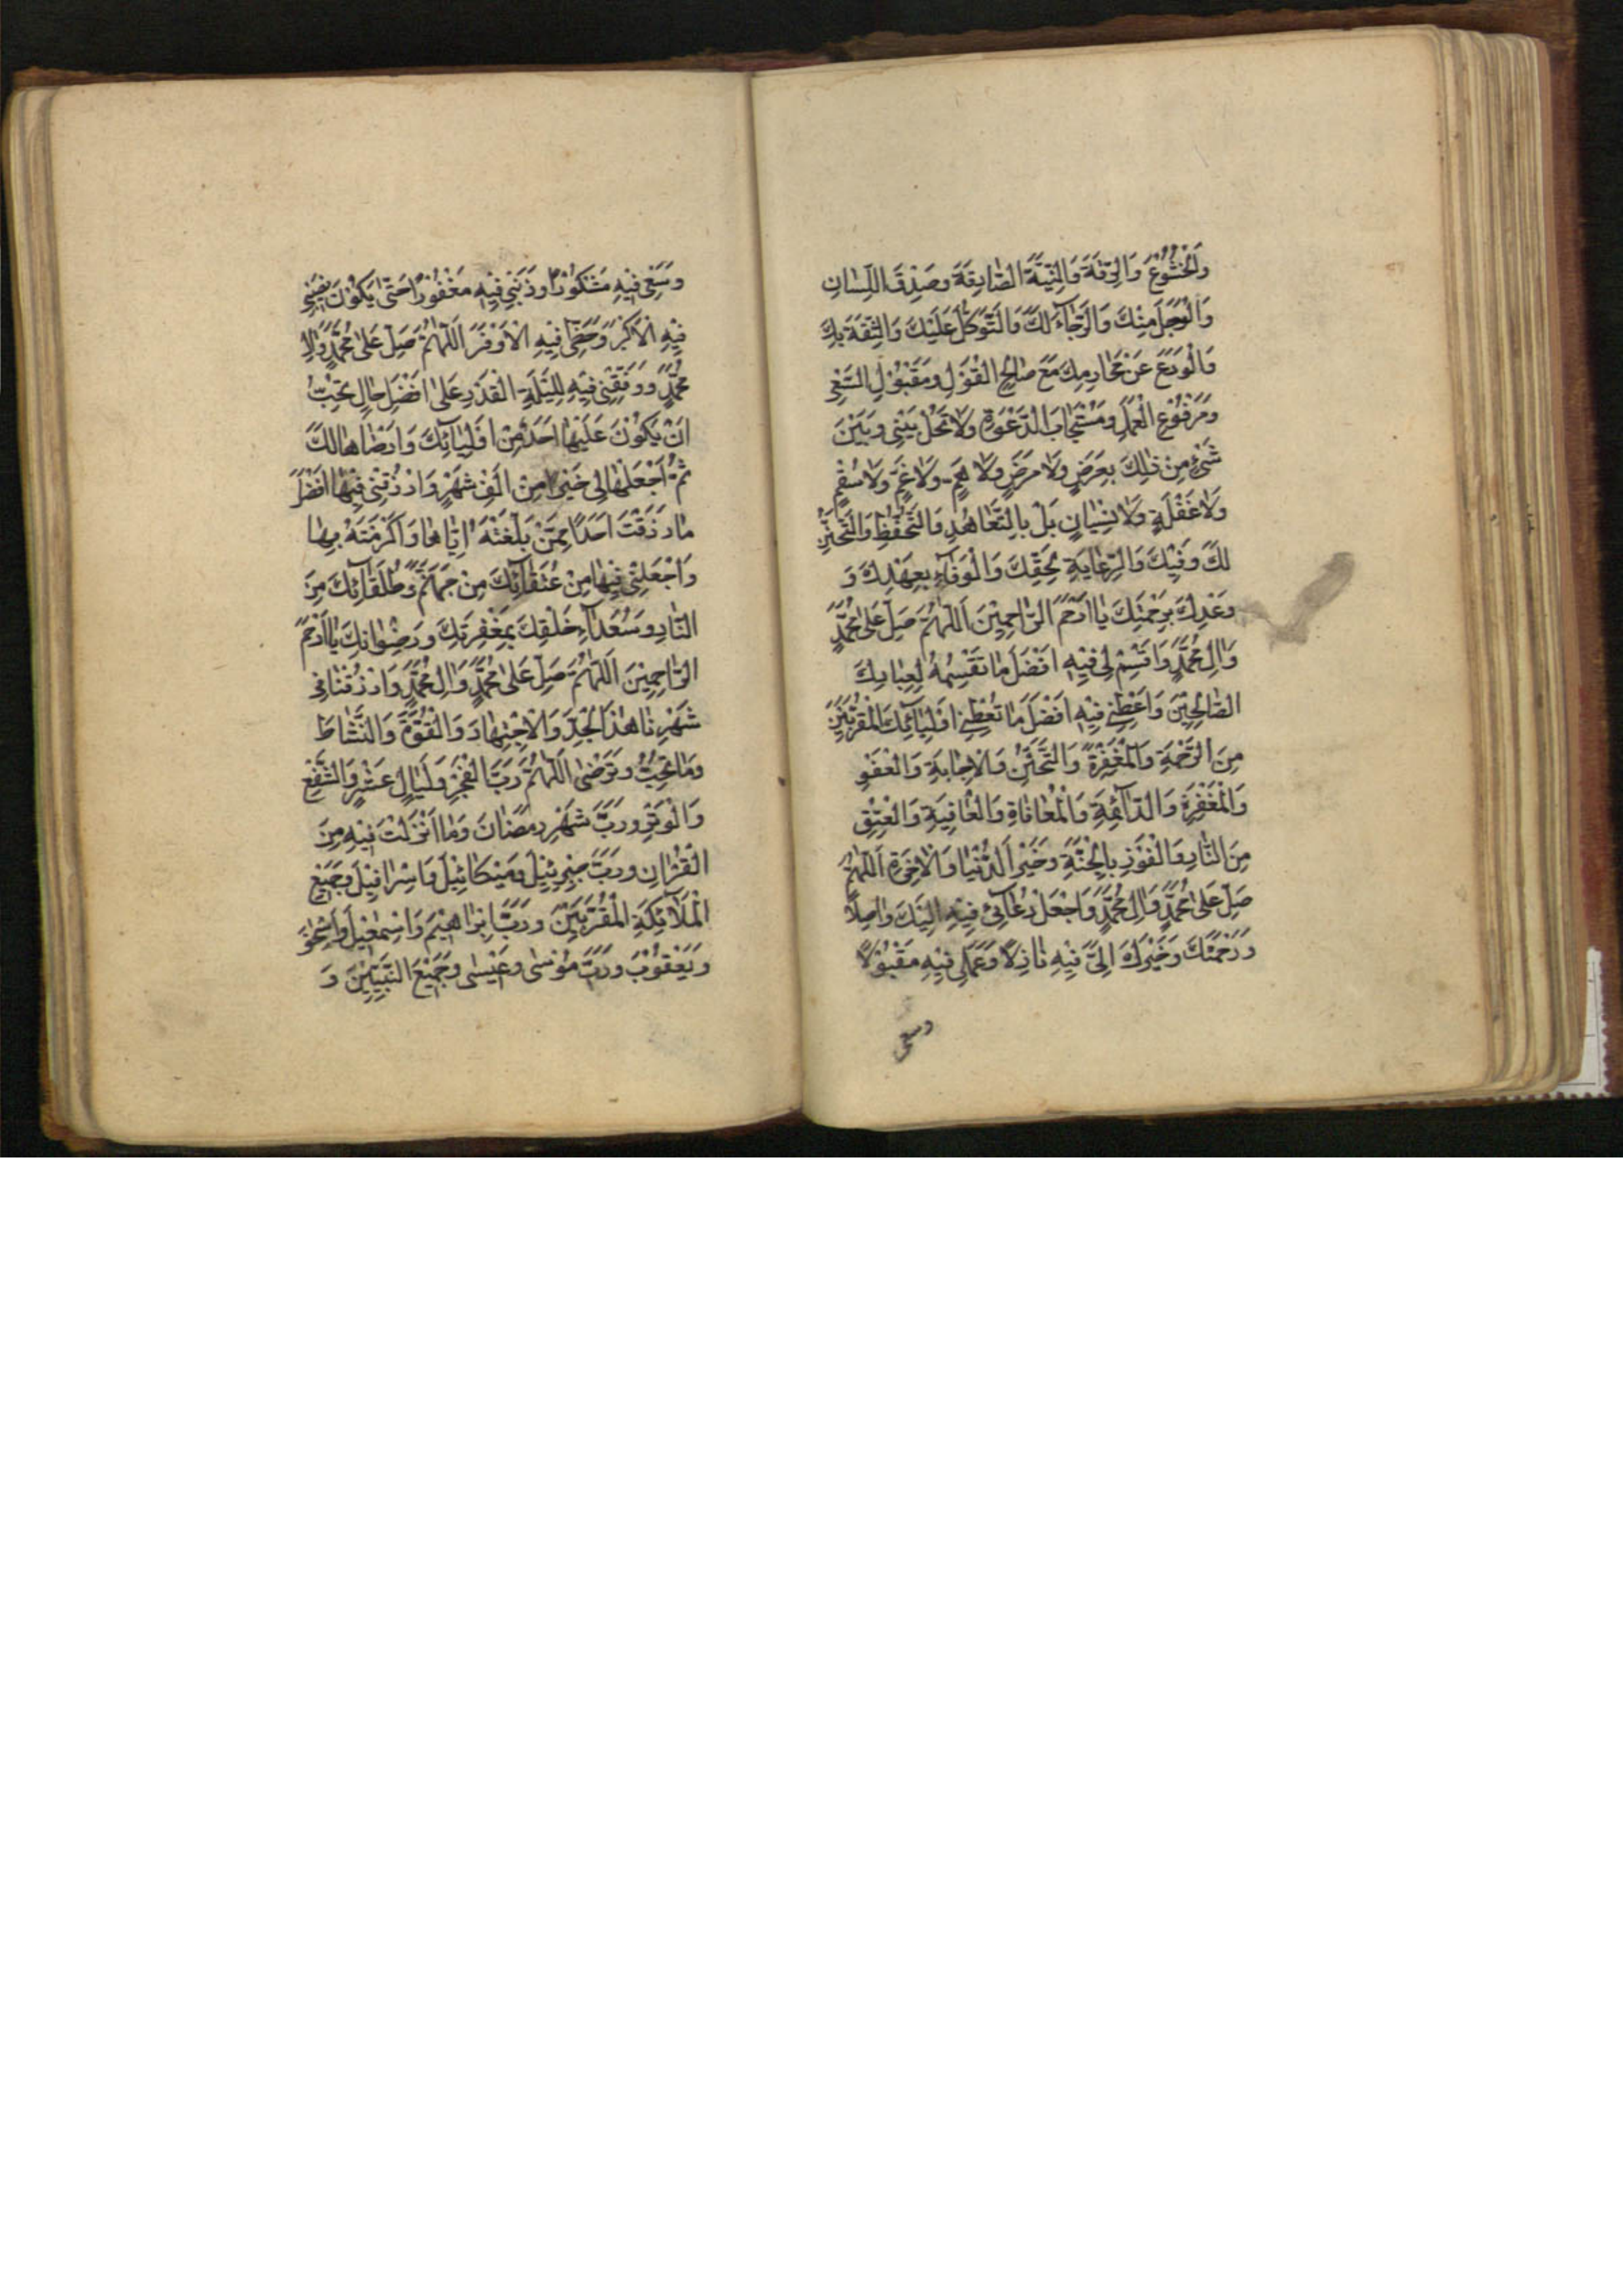 وَالْخُشُوْعَ وَالرِّقَّةَ وَالنِّيَّةَ الصَّادِقَةَ وَصِدْقَ اللِّسَانِ
وَالْوَجَلَ مِنْكَ وَالرَّجَاءَ لَكَ وَالتَّوَكُّلَ عَلَيْكَ وَالثِّقَةَ بِكَ
وَالْوَرَعَ عَنْ مَحَارِمِكَ مَعَ صَالِحِ الْقَوْلِ وَمَقْبُوْلِ السَّعْيِ
وَمَرْفُوْعِ الْعَمَلِ وَمُسْتَجَابِ الدَّعْوَةِ وَلَا تَحُلْ بَيْنِيْ وَبَيْنَ
شَيْءٍ مِنْ ذٰلِكَ بِعَرَضٍ وَلَا مَرَضٍ وَلَا هَمٍّ وَلَا غَمٍّ وَلَا سُقْمٍ
وَلَا غَفْلَةٍ وَلَا نِسْيَانٍ بَلْ بِالتَّعَاهُدِ وَالتَّحَفُّظِ وَالتَّحَنُّنِ
لَكَ وَفِيْكَ وَالرِّعَايَةِ لِحَقِّكَ وَالْوَفَاءِ بِعَهْدِكَ وَ
وَعْدِكَ بِرَحْمَتِكَ يَا اَرْحَمَ الرَّاحِمِيْنَ اَللّٰهُمَّ صَلِّ عَلٰى مُحَمَّدٍ
وَاٰلِ مُحَمَّدٍ وَاقْسِمْ لِيْ فِيْهِ اَفْضَلَ مَا تَقْسِمُهُ لِعِبَادِكَ
الصَّالِحِيْنَ وَاَعْطِنِيْ فِيْهِ اَفْضَلَ مَا تُعْطِيْ اَوْلِيَائَكَ الْمُقَرَّبِيْنَ
مِنَ الرَّحْمَةِ وَالْمَغْفِرَةِ وَالتَّحَنُّنِ وَالْاِجَابَةِ وَالْعَفْوِ
وَالْمَغْفِرَةِ وَالدَّائِمَةِ وَالْمُعَافَاةِ وَالْعَافِيَةِ وَالْعِتْقِ
مِنَ النَّارِ وَالْفَوْزِ بِالْجَنَّةِ وَخَيْرِ الدُّنْيَا وَالْاٰخِرَةِ اَللّٰهُمَّ
صَلِّ عَلٰى مُحَمَّدٍ وَاٰلِ مُحَمَّدٍ وَاجْعَلْ دُعَائِيْ فِيْهِ اِلَيْكَ وَاصِلًا
وَرَحْمَتَكَ وَخَيْرَكَ اِلَيَّ فِيْهِ نَازِلًا وَعَمَلِيْ فِيْهِ مَقْبُوْلًا
وسعيي
وَسَعْيِيْ فِيْهِ مَشْكُوْرًا وَذَنْبِيْ فِيْهِ مَغْفُوْرًا حَتّٰى يَكُوْنَ نَصِيْبِيْ
فِيْهِ الْاَكْبَرَ وَحَظِّيْ فِيْهِ الْاَوْفَرَ اَللّٰهُمَّ صَلِّ عَلٰى مُحَمَّدٍ وَاٰلِ
مُحَمَّدٍ وَوَفِّقْنِيْ فِيْهِ لِلَيْلَةِ الْقَدْرِ عَلٰى اَفْضَلِ حَالٍ تُحِبُّ
اَنْ يَكُوْنَ عَلَيْهَا اَحَدٌ مِنْ اَوْلِيَائِكَ وَاَرْضَاهَا لَكَ
ثُمَّ اجْعَلْهَا لِيْ خَيْرًا مِنْ اَلْفِ شَهْرٍ وَارْزُقْنِيْ فِيْهَا اَفْضَلَ
مَا رَزَقْتَ اَحَدًا مِمَّنْ بَلَّغْتَهُ اِيَّاهَا وَاَكْرَمْتَهُ بِهَا
وَاجْعَلْنِيْ فِيْهَا مِنْ عُتَقَائِكَ مِنْ جَهَنَّمَ وَطُلَقَائِكَ مِنَ
النَّارِ وَسُعَدَاءِ خَلْقِكَ بِمَغْفِرَتِكَ وَرِضْوَانِكَ يَا اَرْحَمَ
الرَّاحِمِيْنَ اَللّٰهُمَّ صَلِّ عَلٰى مُحَمَّدٍ وَاٰلِ مُحَمَّدٍ وَارْزُقْنَا فِيْ
شَهْرِنَا هٰذَا الْجِدَّ وَالْاِجْتِهَادَ وَالْقُوَّةَ وَالنَّشَاطَ
وَمَا تُحِبُّ وَتَرْضٰى اَللّٰهُمَّ رَبَّ الْفَجْرِ وَلَيَالٍ عَشْرٍ وَالشَّفْعِ
وَالْوَتْرِ وَرَبَّ شَهْرِ رَمَضَانَ وَمَا اَنْزَلْتَ فِيْهِ مِنَ
الْقُرْاٰنِ وَرَبَّ جِبْرِئِيْلَ وَمِيْكَائِيْلَ وَاِسْرَافِيْلَ وَجَمِيْعِ
الْمَلَائِكَةِ الْمُقَرَّبِيْنَ وَرَبَّ اِبْرَاهِيْمَ وَاِسْمٰعِيْلَ وَاِسْحٰقَ
وَيَعْقُوْبَ وَرَبَّ مُوْسٰى وَعِيْسٰى وَجَمِيْعِ النَّبِيِّيْنَ وَ